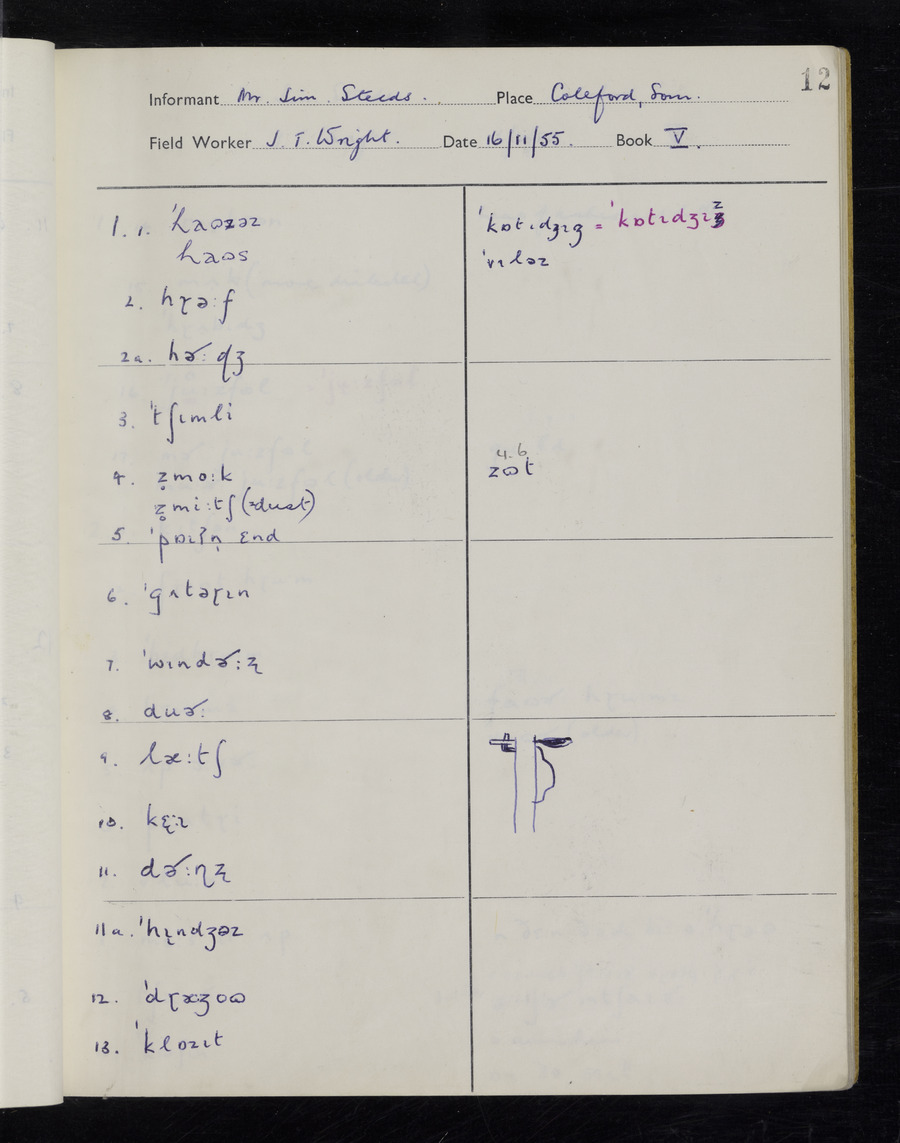 12
Informant Mr. Jim Steeds. Place Coleford, Som.
Field Worker J. T. Wright. Date 16/11/55. Book V.
1. 1. ˈhaʊzəz
haʊs
2. hɽəːf
2a. hɚːdʒ
3. ˈtʃɩmli
4. z̥moːk
z̥miːtʃ (=dust)
5. ˈpɒɩʔn̩ ɛnd
6. ˈgʌtəɽɩn
7. ˈwɩndɚːz̢
8. duɚː
9. læːtʃ
10.
11. dɚːɳz̢
11a. ˈhɩ̨ndʒəz
12. ˈdɽæʒoʊ
13. ˈklɒzɩt
ˈkɒtɩdʒɩʒ = ˈkɒtɩdʒɩz
ˈvɩləz
4.6
zʊt